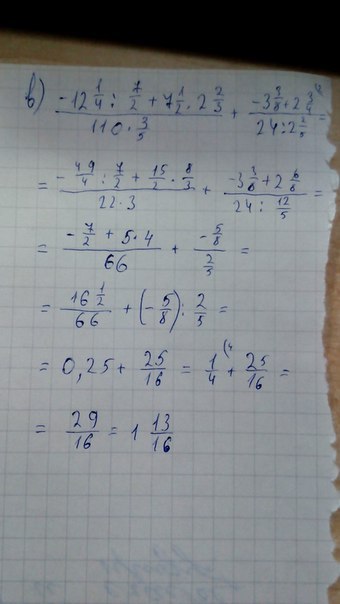 в) (-12 1/4 : 7/2 + 7 1/2 · 2 2/3) / (110 · 3/5) + (-3 3/8 + 2 3/4) / (24 : 2 2/5) =
= (-49/4 : 7/2 + 15/2 · 8/3) / (22 · 3) + (-3 3/8 + 2 6/8) / (24 : 12/5) =
= (-7/2 + 5 · 4) / 66 + (-5/8) / (2/5) =
= (16 1/2) / 66 + (-5/8) : 2/5 =
= 0,25 + 25/16 = 1/4 (4 + 25/16 =
= 29/16 = 1 13/16